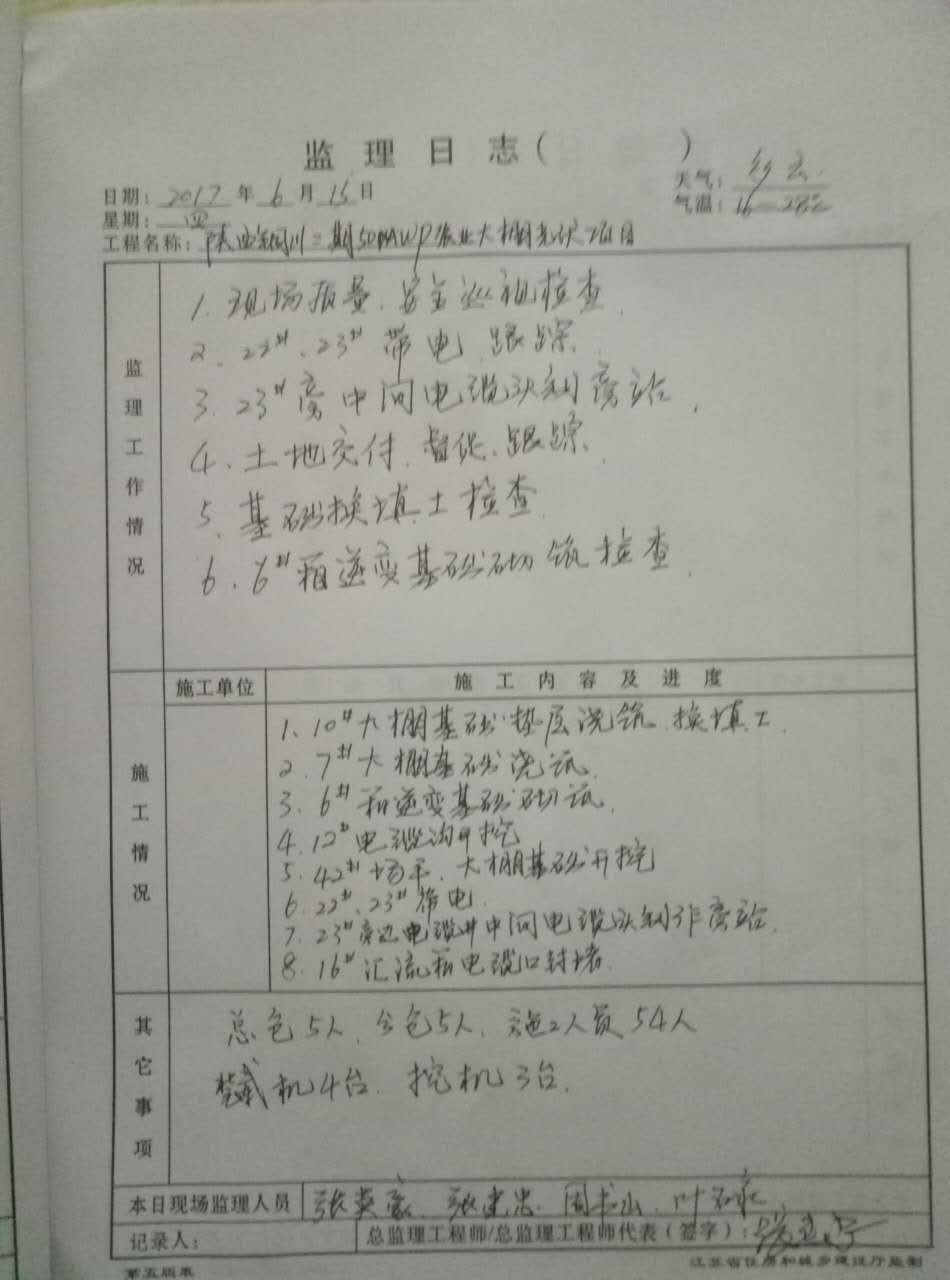 监理日志( )
日期: 2017 年 6 月 15 日
天气: 多云
星期: 四
气温: 16-28℃
工程名称: 陕西铜川二期50MWP农业大棚光伏项目
监理工作情况
1. 现场质量、安全巡视检查.
2. 22#、23#带电、跟踪.
3. 23#旁中间电缆头制 旁站.
4. 土地交付、督促、跟踪.
5. 基础换填土检查.
6. 6#箱逆变基础砌筑检查.
施工情况
施工单位 施工内容及进度
1. 10#大棚基础垫层浇筑、换填土.
2. 7#大棚基础浇筑.
3. 6#箱逆变基础砌筑.
4. 12#电缆沟开挖
5. 42#场平、大棚基础开挖
6. 22#、23#带电.
7. 23#旁边电缆井中间电缆头制作旁站.
8. 16#汇流箱电缆口封堵.
其它事项
总包5人、分包5人、施工人员54人
装载机4台. 挖机3台.
本日现场监理人员 张英豪、张建忠、周书山、
记录人: 总监理工程师/总监理工程师代表(签字):
第五版表 江苏省住房和城乡建设厅监制